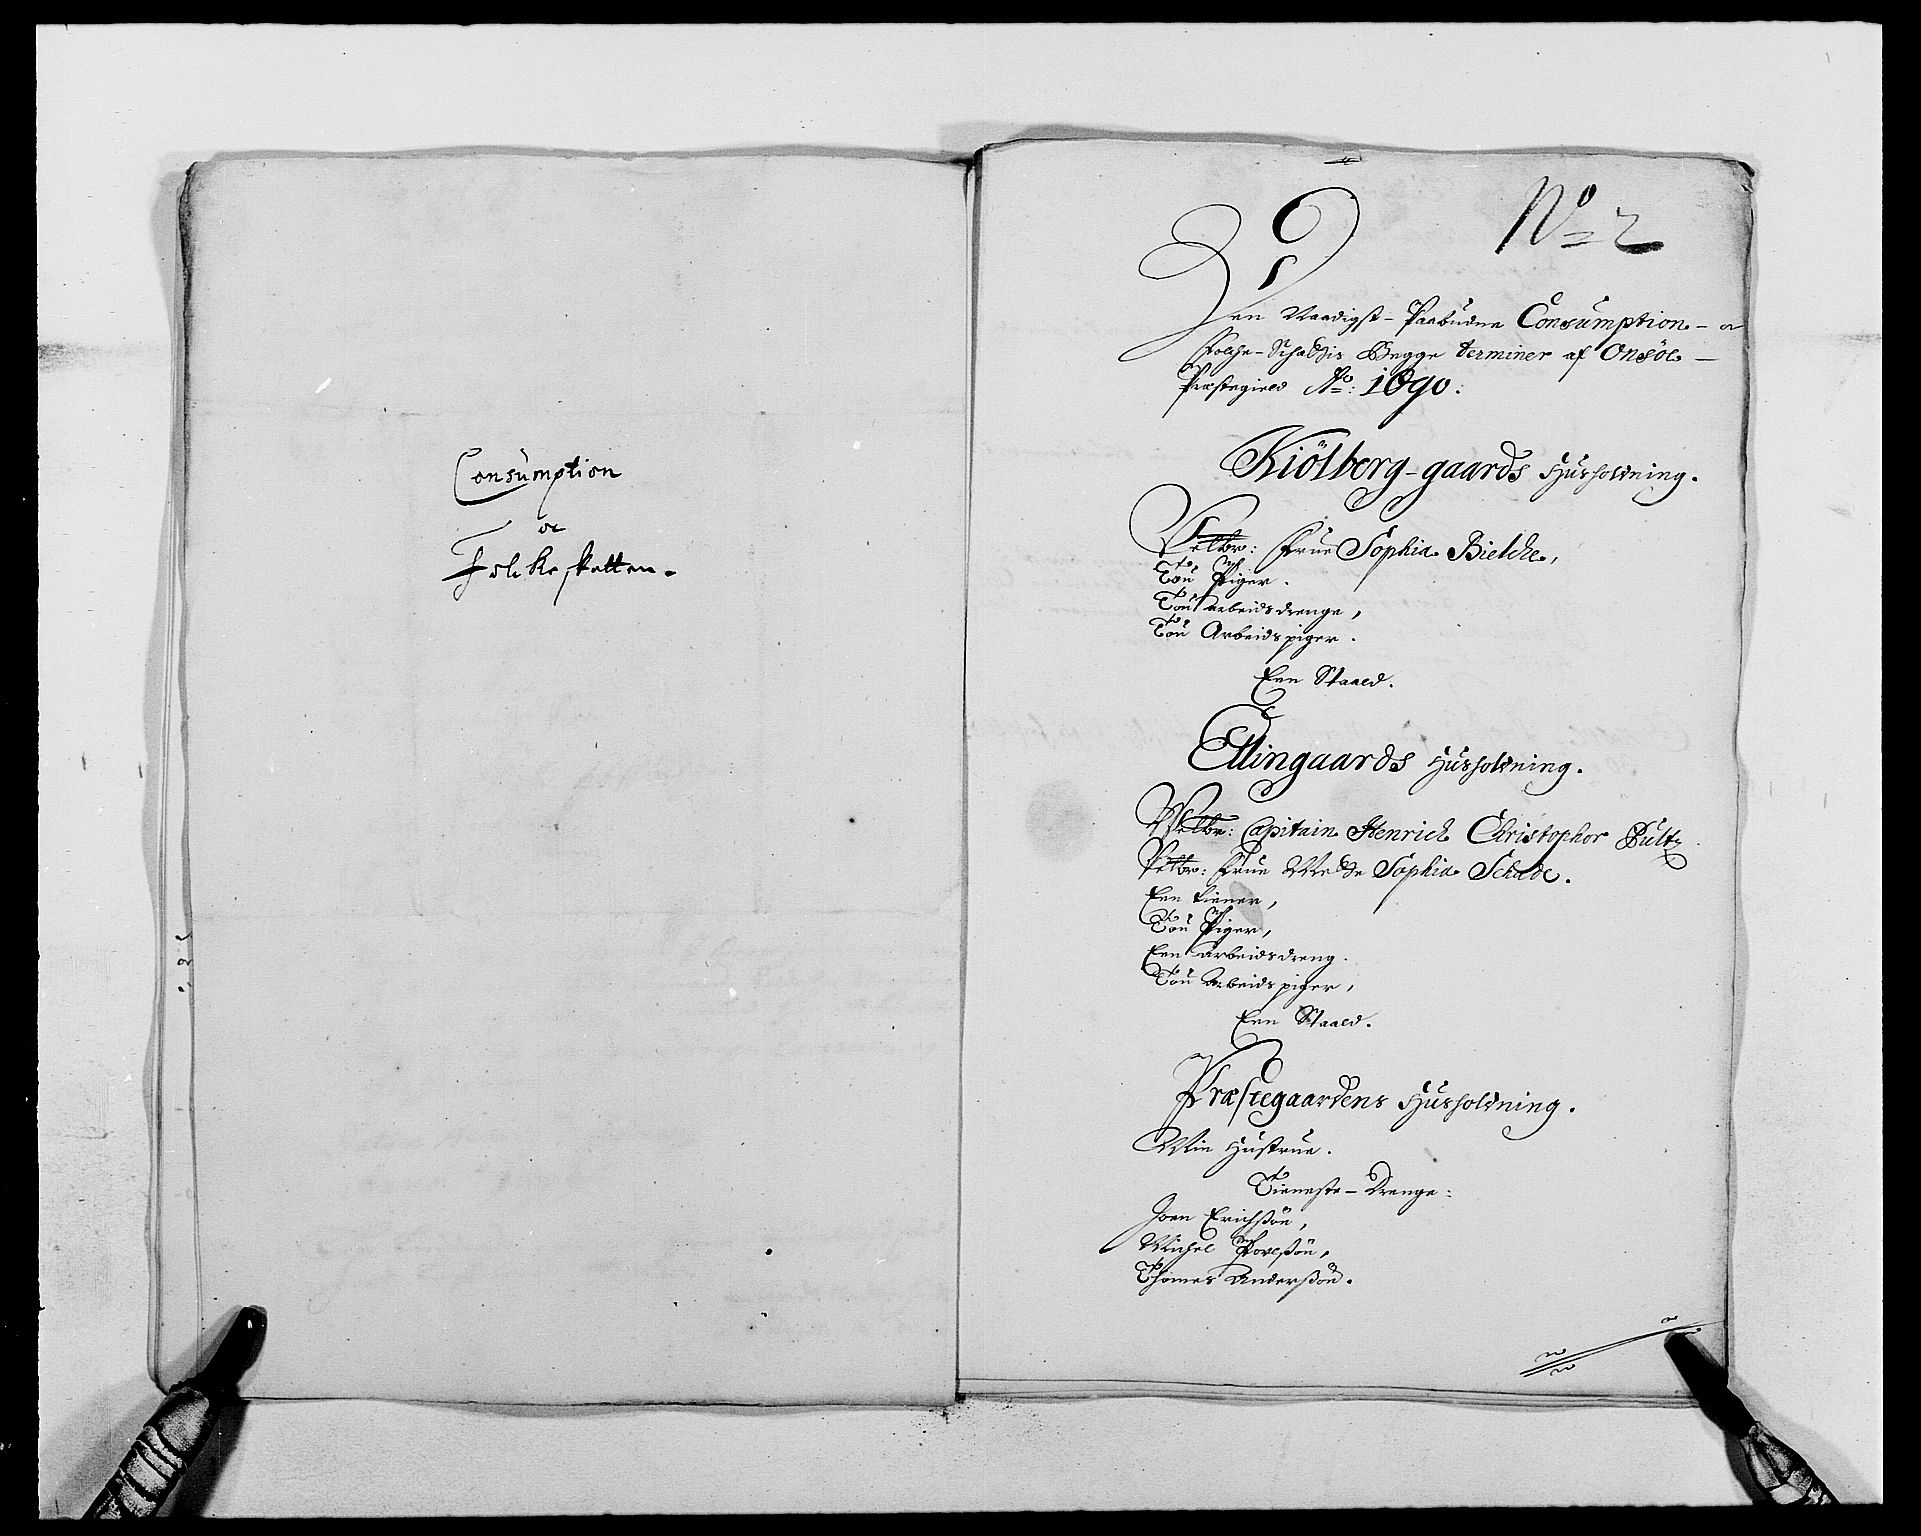 Consumption
oc
Folckeskatten.
No 2
Den Naadigst-Paabudne Consumption- oc
Folche-Schattis Begge terminer af Onsöe-
Præstegield Ao: 1690.
Kiölberg-gaards Husholdning.
Velbr: Frue Sophia Bielche,
Tou Piger.
Tou arbeidsdrenge,
Tou Arbeidspiger.
Een Staald.
Ellingaards Husholdning.
Welbr: Capitain Henrich Christophor Bultz
Velbr: Frue Mette Sophia Schade.
Een tiener,
Tou Piger,
Een arbeidsdreng.
Tou Arbeidspiger,
Een Staald.
Præstegaardens Husholdning.
Min Hustrue.
Tieneste-Drenge:
Joen Erichsön,
Michel Povelsön,
Thomes Andersön.